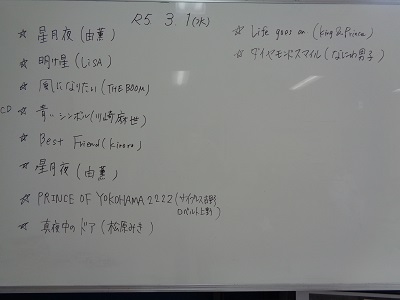 R5. 3. 1(水)
☆ 星月夜(由薫)
☆ 明け星(LiSA)
☆ 風になりたい(THE BOOM)
CD ☆ 青いシンボル(川崎麻世)
☆ Best Friend(Kiroro)
☆ 星月夜(由薫)
☆ PRINCE OF YOKOHAMA 2222(サイプレス上野
ロベルト上野)
☆ 真夜中のドア(松原みき)
☆ Life goes on (King & Prince)
☆ ダイヤモンドスマイル(なにわ男子)